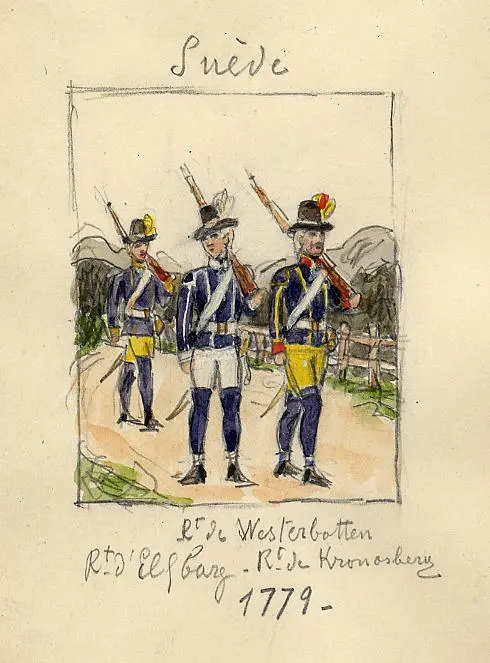 Suède
Rt de Westerbotten
Rt d'Elfsbarg - Rt de Kronosberg
1779-